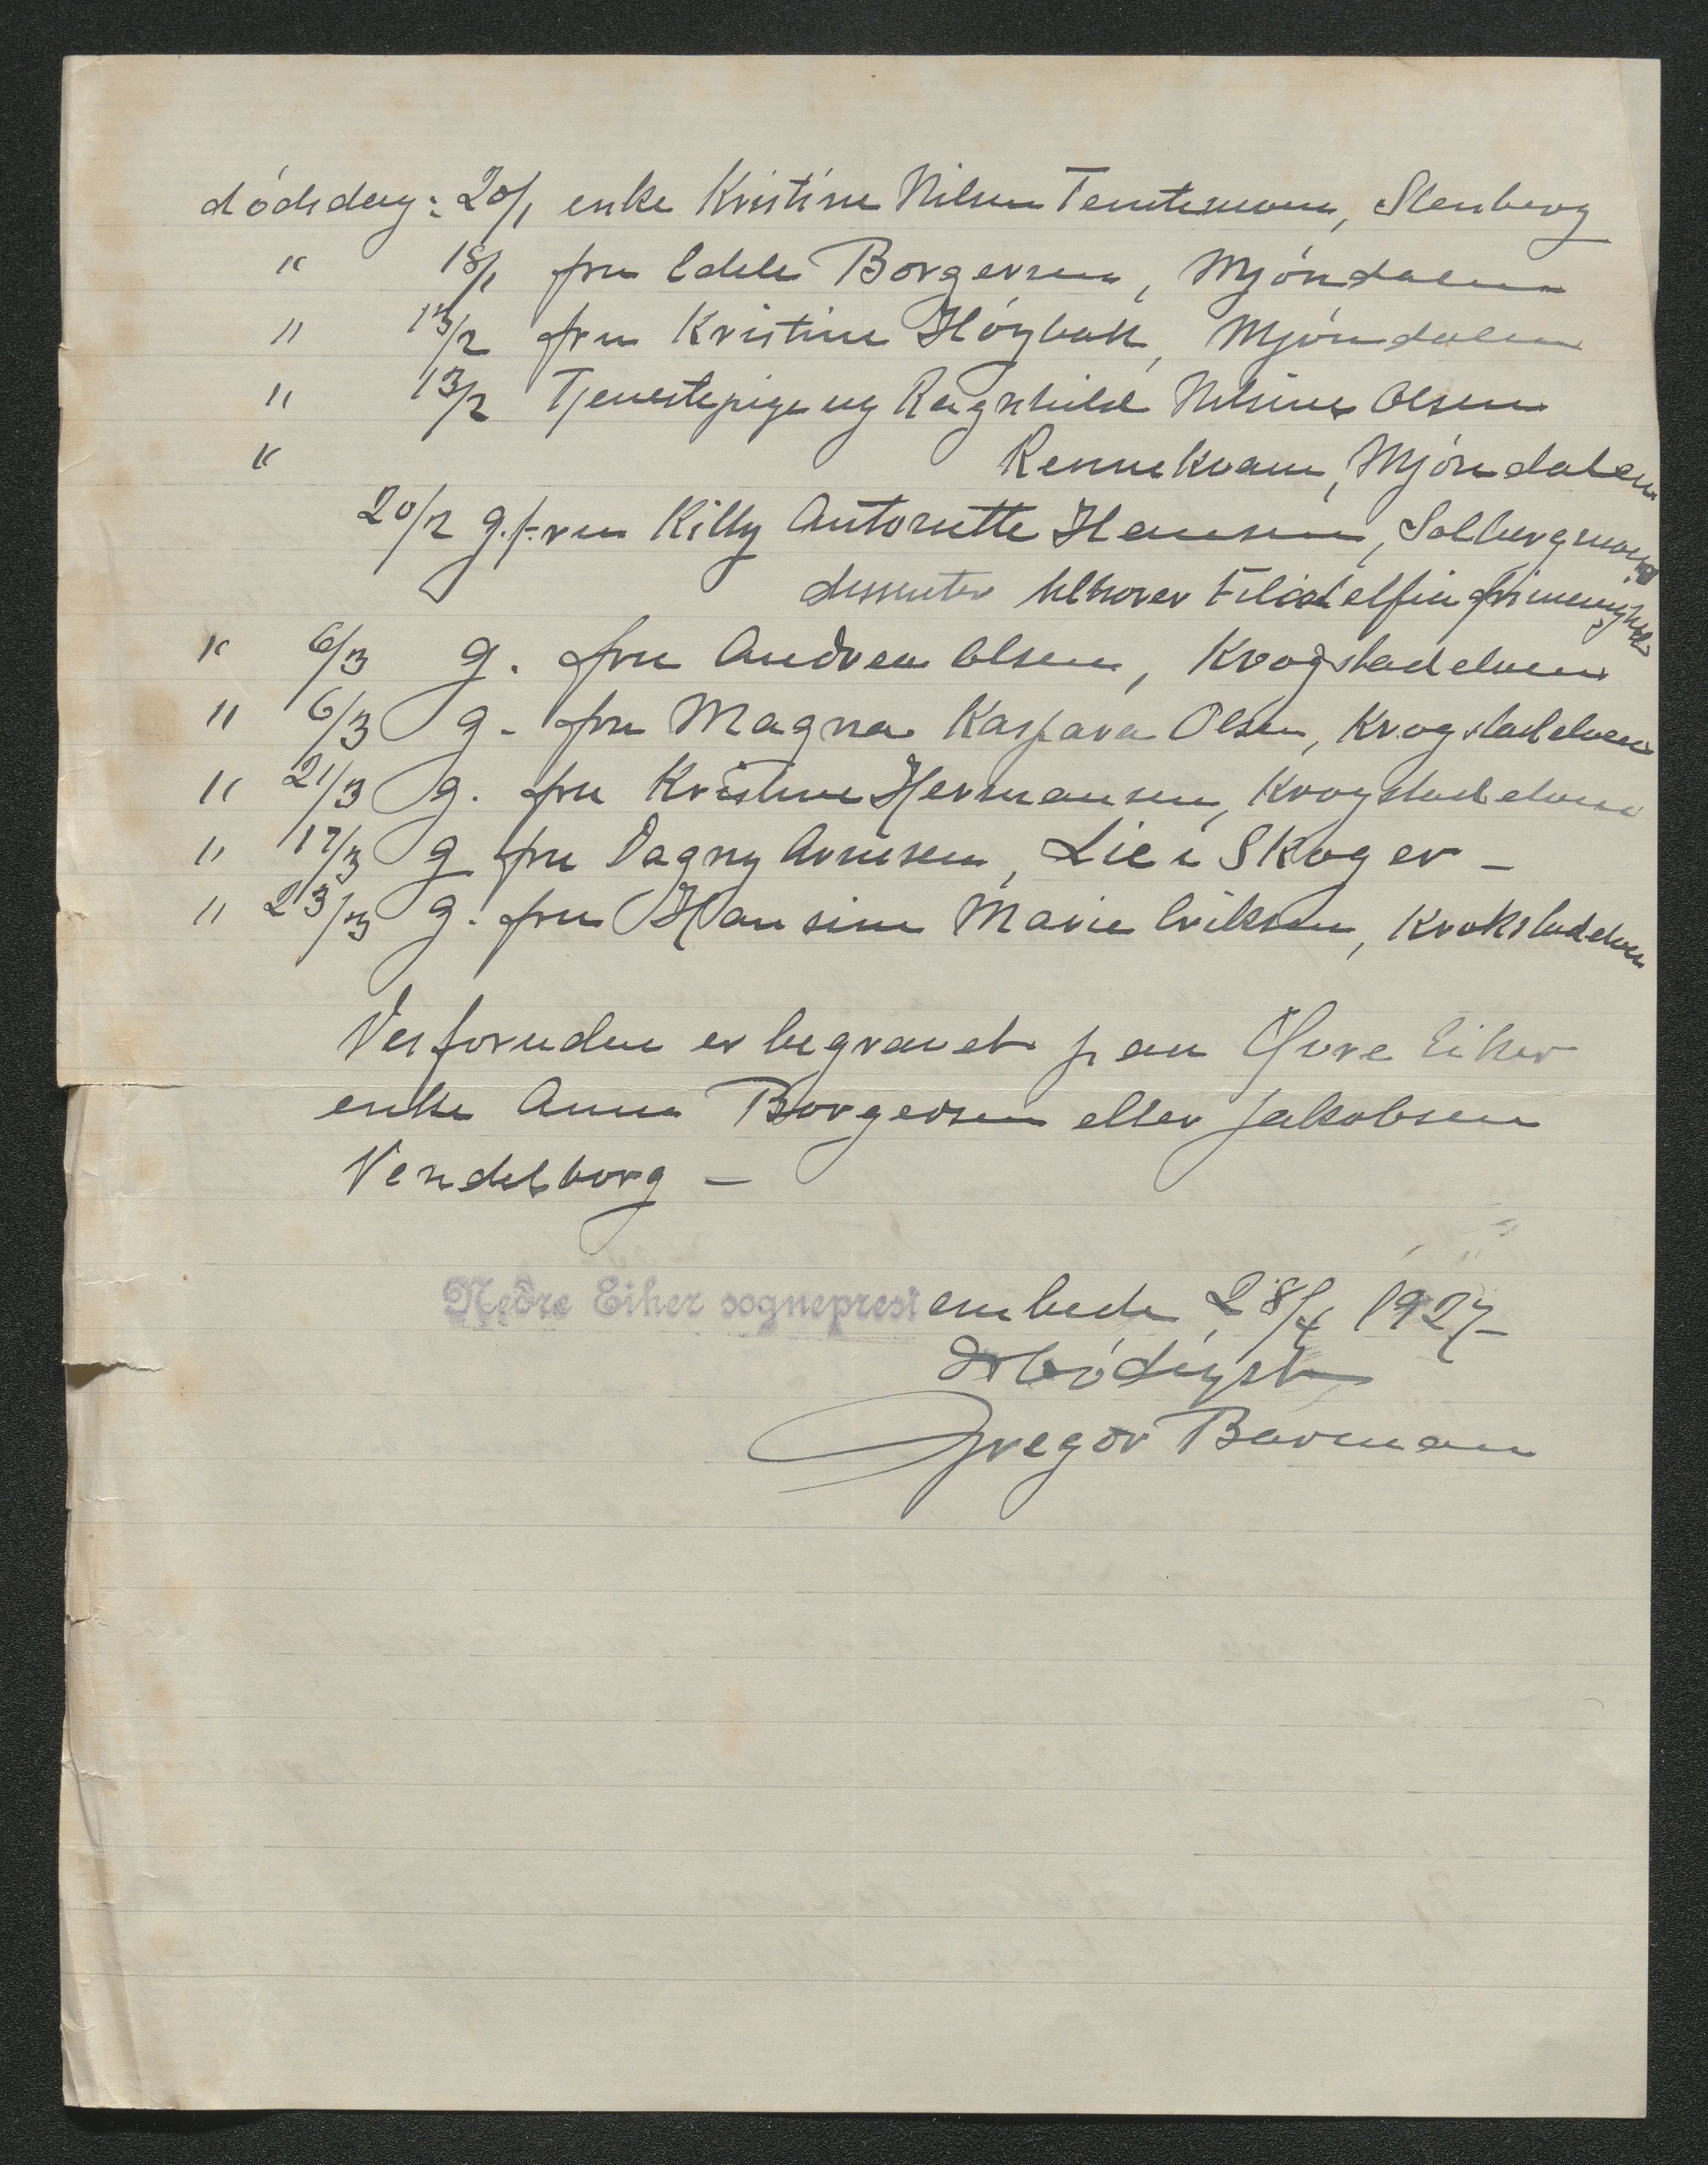 dödsdag: 20/1 enke Kristine Nilsen Temtemoen, Stenberg
" 18/1 fru Edele Borgersen, Mjöndalen
" 13/2 fru Kristine Högbak, Mjöndalen
" 13/2 Tjenestepige ug Ragnhild Nilsine Olsen
" Rennekvam, Mjöndalen
20/2 g. fru Killy Antonette Hansen, Solbergmoen
dissenter tilhører Filadelfia frimenighet
" 6/3 g. fru Andrea Olsen, Krogstadelven
" 6/3 g. fru Magna Kaspara Olsen, Krogstadelven
" 21/3 g. fru Kristine Hermansen, Krogstadelven
" 17/3 g fru Dagny Arnesen, Lie i Skoger -
" 23/3 g. fru Hansine Marie Eriksen, Krokstadelven
Desforuden er begravet paa Øvre Eiker
enke Anna Borgersen eller Jakobsen
Vendelborg -
Nedre Eiker sogneprestembede, 28/4 1927
Ærbödigst
Gregor Borman